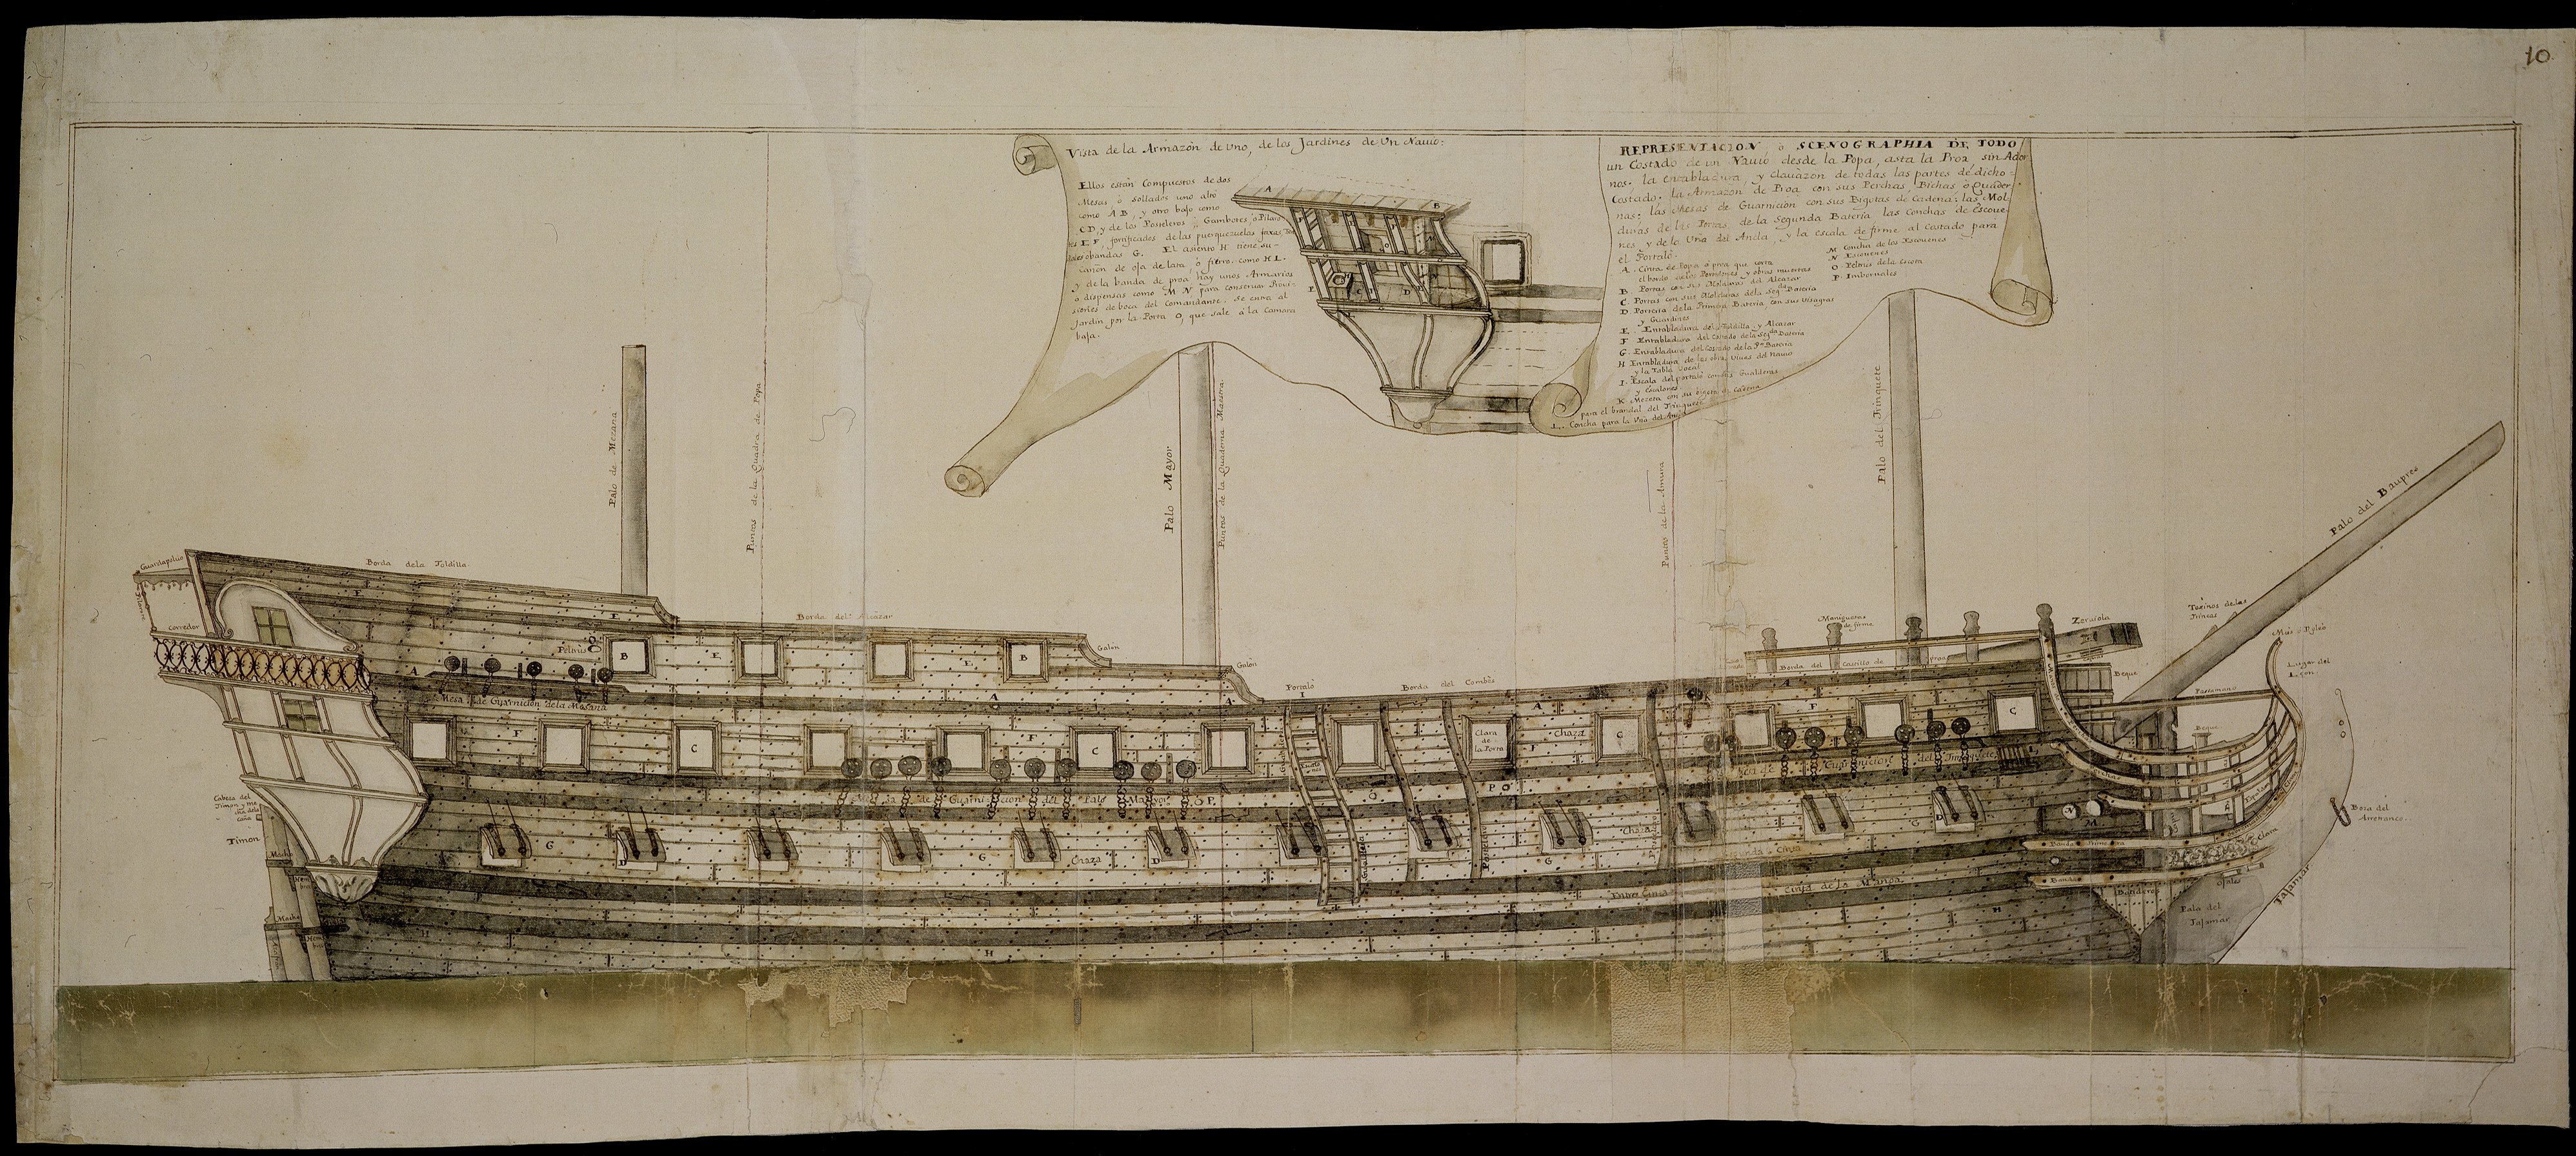 10
Vista de la Armazòn de Uno, de los Jardines de Un Navio:
Ellos estàn Compuestos de dos
Mesas, ò sollados uno alto
como A B, y otro bajo como
C D, y de los Posteleros, Gambotes, ò Pilaro
tes E F, fortificados de las puerquezuelas faxas
obandas G. El asiento H tiene su
cañòn de oja de lata, ò fierro, como H I.
y de la banda de proa, hay unos Armarios
ò dispensas como M N para conservar Provi-
siones de boca del Comandante. Se entra al
Jardin por la Porta O, que sale à la Camara
baja.
A
B
D
REPRESENTACION, ò SCENOGRAPHIA DE TODO
un Costado de un Navio desde la Popa, asta la Proa, sin Ador
nos: la entabladura, y clauazon de todas las partes de dicho
Costado: la Armazòn de Proa con sus Perchas, Bichas ò Quader
nas: las Mesas de Guarnicion con sus Bigotas de Cadena: las Mol-
duras de las Portas, de la Segunda Baterìa las Conchas de Escoue-
nes, y de la Uña del Ancla, y la escala de firme al Costado para
el Portalò.
A. Cinta de Popa à proa que corta
B. Portas con sus Molduras del Alcazar
C. Portas con sus Molduras de la Segda Baterìa
D. Porteria de la Primera Baterìa, con sus Visagras
y Guardines
E. Entabladura del Toldilla, y Alcazar
F. Entabladura del Costado de la Segda Baterìa
G. Entabladura del Costado de la Pra Baterìa
H. Entabladura de las obras Vivas del Navio
y la Tabla Vocal
I. Escala del portalò con sus Gualderas
y Escalones
K. Mezeta con su bigota de Cadena
para el brandal del Trinquete
L. Concha para la Uña del Ancla
M. Concha de los Escouenes
N. Escouenes
O. Pelnus de la Escota
P. Imbornales
Palo de Mezana
Puntas de la Quadra de Popa
Palo Mayor
Puntas de la Quaderna Maestra
Puntas de la Amura
Palo del Trinquete
Palo del Baupres
Guardapolvo
Borda de la Toldilla
Corredor
E
E
Pelnus
Borda del Alcazar
B
E
E
B
Galòn
Galòn
A
A
A
Mesa de Guarnicion de la Mesana
Portalò
Borda del Combès
A
I
Manigueras
de firme
Borda del Castillo de proa
Zeruiola
Beque
Toxinos de las
Trincas
Lugar del
Leon
Pasamano
Beque
F
C
F
C
Clara
de
la Porta
F
Chaza
C
F
C
Mesa de Guarnicion del Palo Mayor
O P
O
P O
Guarnicion del Trinquete
Cabeza del
Timon
Timon
Macho
Macho
G
D
G
Chaza
D
G
Chaza
G
D
N
M
Boza del
Arrefranco
Entre Cinta
Cinta de la Manga
Banda Primera
Tajamar
Pala del
Tajamar
H
H
H